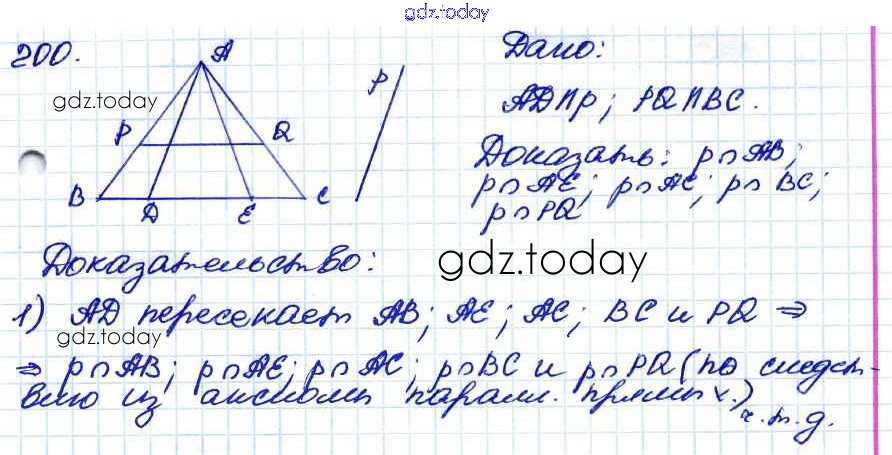 gdz.today
200.
A
gdz.today
P
Q
B
D
E
C
p
Дано:
AD∩p; PQ∩BC.
Доказать: p∩AB;
p∩AE; p∩AC; p∩BC;
p∩PQ
Доказательство:
gdz.today
1) AD пересекает AB; AE; AC; BC и PQ ⇒
gdz.today
⇒ p∩AB; p∩AE; p∩AC; p∩BC и p∩PQ (по следст-
вию из аксиомы паралл. прямых.)
ч.т.д.